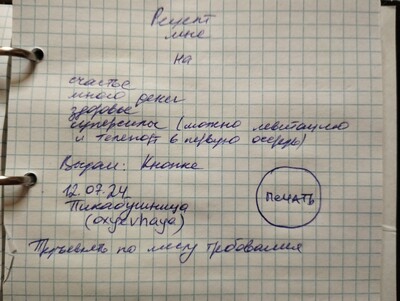 Рецепт
мне
на
счастье
много денег
здоровье
суперсилы (можно левитацию
и телепорт в первую очередь)
Выдан: Кнопке
12.07.24
Пикабушница
(oxyevhaya)
ПЕЧАТЬ
Предъявлять по месту требования